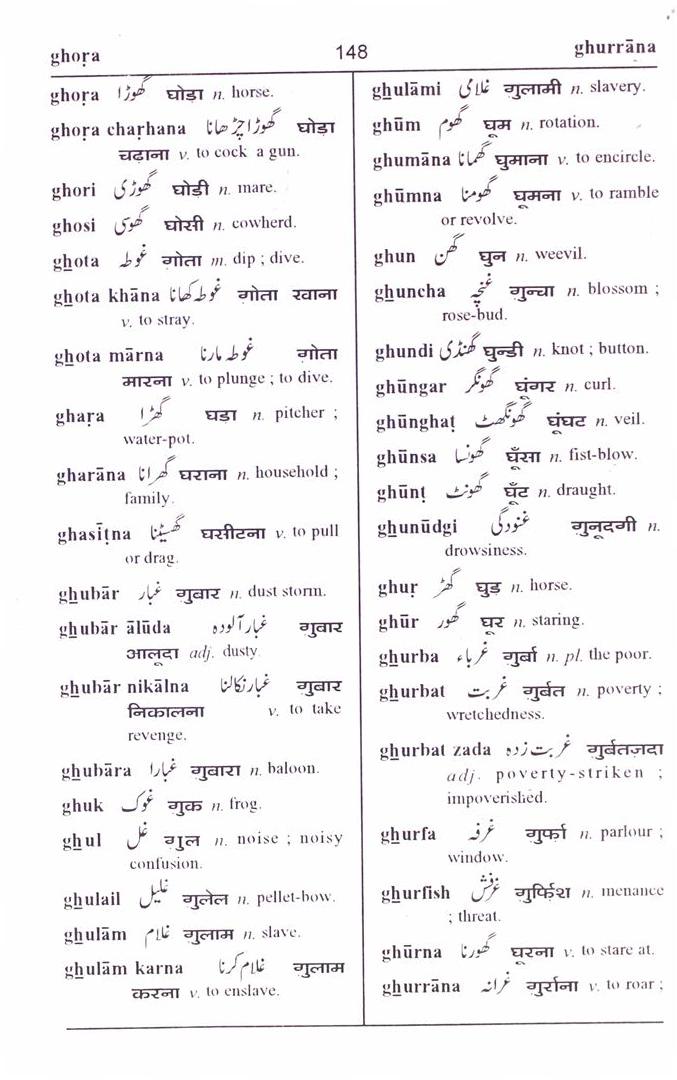 ghoṛa
148
ghurrāna
ghoṛa گھوڑا घोडा n. horse.
ghoṛa charhana گھوڑا چڑھانا घोडा
चढ़ाना v. to cock a gun.
ghori گھوڑی घोडी n. mare.
ghosi گھوسی घोसी n. cowherd.
ghota غوطہ गोता m. dip ; dive.
ghota khāna غوطہ کھانا गोता खाना
v. to stray.
ghota mārna غوطہ مارنا गोता
मारना v. to plunge ; to dive.
ghaṛa گھڑا घडा n. pitcher ;
water-pot.
gharāna گھرانا घराना n. household ;
family.
ghasiṭna گھسیٹنا घसीटना v. to pull
or drag.
ghubār غبار गुबार n. dust storm.
ghubār ālūda غبار آلودہ गुबार
आलूदा adj. dusty.
ghubār nikālna غبار نکالنا गुबार
निकालना v. to take
revenge.
ghubāra غبارا गुबारा n. baloon.
ghuk غوک गुक n. frog.
ghul غل गुल n. noise ; noisy
confusion.
ghulail غلیل गुलेल n. pellet-bow.
ghulām غلام गुलाम n. slave.
ghulām karna غلام کرنا गुलाम
करना v. to enslave.
ghulāmi غلامی गुलामी n. slavery.
ghūm گھوم घूम n. rotation.
ghumāna گھمانا घुमाना v. to encircle.
ghūmna گھومنا घूमना v. to ramble
or revolve.
ghun گھن घुन n. weevil.
ghuncha غنچہ गुन्चा n. blossom ;
rose-bud.
ghundi گھنڈی घुन्डी n. knot ; button.
ghūngar گھونگر घूंगर n. curl.
ghūnghaṭ گھونگھٹ घूंघट n. veil.
ghūnsa گھونسا घूँसा n. fist-blow.
ghūnṭ گھونٹ घूँट n. draught.
ghunūdgi غنودگی गुनूदगी n.
drowsiness.
ghuṛ گھڑ घुड n. horse.
ghūr گھور घूर n. staring.
ghurba غرباء गुर्बा n. pl. the poor.
ghurbat غربت गुर्बत n. poverty ;
wretchedness.
ghurbat zada غربت زدہ गुर्बतज़दा
adj. poverty-striken ;
impoverished.
ghurfa غرفہ गुर्फा n. parlour ;
window.
ghurfish غرفش गुर्फिश n. menance
; threat.
ghūrna گھورنا घूरना v. to stare at.
ghurrāna غرانہ गुर्राना v. to roar ;